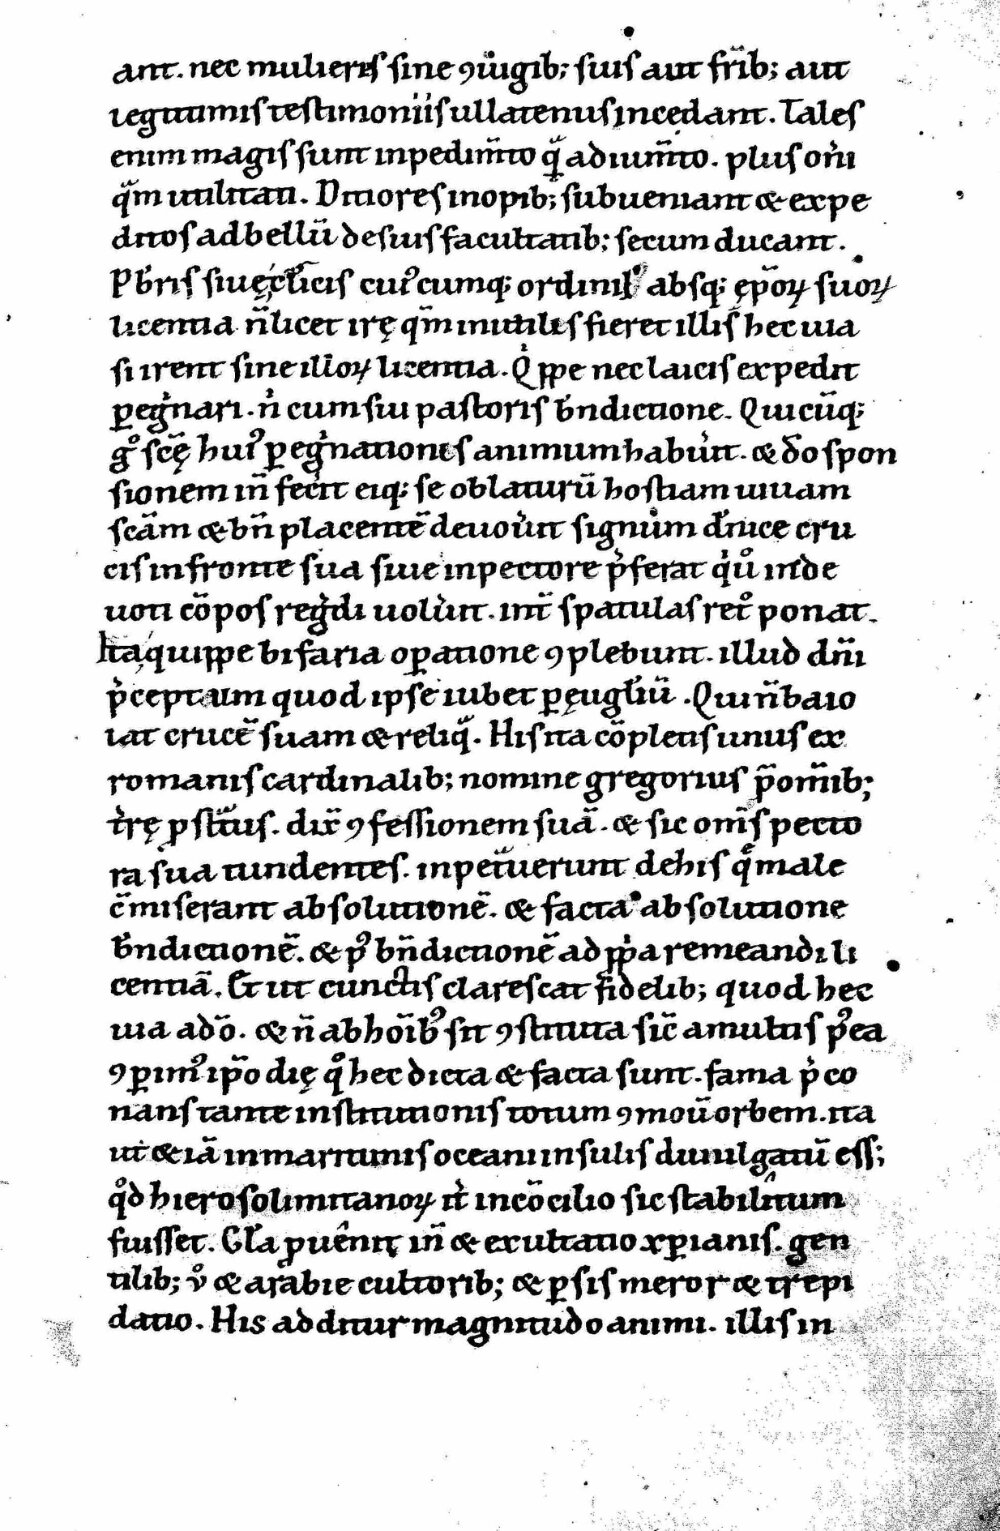 ant. nec mulieres sine ꝯiugib; suis aut frib; aut
legitimis testimoniis ullatenus incedant. Tales
enim magis sunt inpedim̄to q̄ adium̄to. plus oni
q̄m utilitati. Ditiores inopib; subueniant & expe
ditos ad bellū de suis facultatib; secum ducant.
Pb̄ris siuę cl̄icis cuiꝰcumq; ordinis absq; ęp̄oꝝ suoꝝ
licentia n̄ licet irę qm̄ inutilis fieret illis hec uia
si irent sine illoꝝ licentia. Qͥppe nec laicis expedit
ꝑegͥnari. nͥ cum sui pastoris bn̄dictione. Quicūq;
gͦ scę̄ huiꝰ ꝑegͥnationis animum habuͥit. & do spon
sionem in̄ fecit eiq; se oblaturū hostiam uiuam
scām & bn̄ placentē deuouͥit signum dn̄ice cru
cis in fronte sua siue in pectore p̄ferat qͥ uͦ inde
uoti cōpos regͥdi uoluͥit. int̄ spatulas retͦ ponat.
Ita quippe bifaria oꝑatione ꝯplebunt. illud dn̄i
p̄ceptum quod ipse iubet ꝑ ęugl̄iū. Qui n̄ baio
iat crucē suam & reliq̄. His ita cōpletis unus ex
romanis cardinalib; nomine gregorius p̄ om̄ib;
tͥrę ꝓstͣtus. dix̄ ꝯfessionem suā. & sic om̄s pecto
ra sua tundentes. inpetͣuerunt de his q̄ male
c̄miserant absolutionē. & facta absolutione
bn̄dictionē. & pꝰ bn̄dictionē ad pͥpͥa remeandi li
centiā. Et ut cunctis clarescat fidelib; quod hec
uia a do̅. & n̄ ab hoīb; sit ꝯstituta sic̄ a multis pꝰea
ꝯꝑimꝰ ip̄o dię qͦ hec dicta & facta sunt. fama p̄co
nans tante institutionis totum ꝯmouͥ orbem. ita
ut & iā in marritimis oceani insulis diuulgatū ess;
qͦd hierosolimitanoꝝ itͥ in cōcilio sic stabilitum
fuisset. Gl̄a ꝓuēnit in̄ & exultatio xꝑianis. gen
tilib; uͦ & arabie cultorib; & ꝑsis meror & trepi
datio. His additur magnitudo animi. illis in